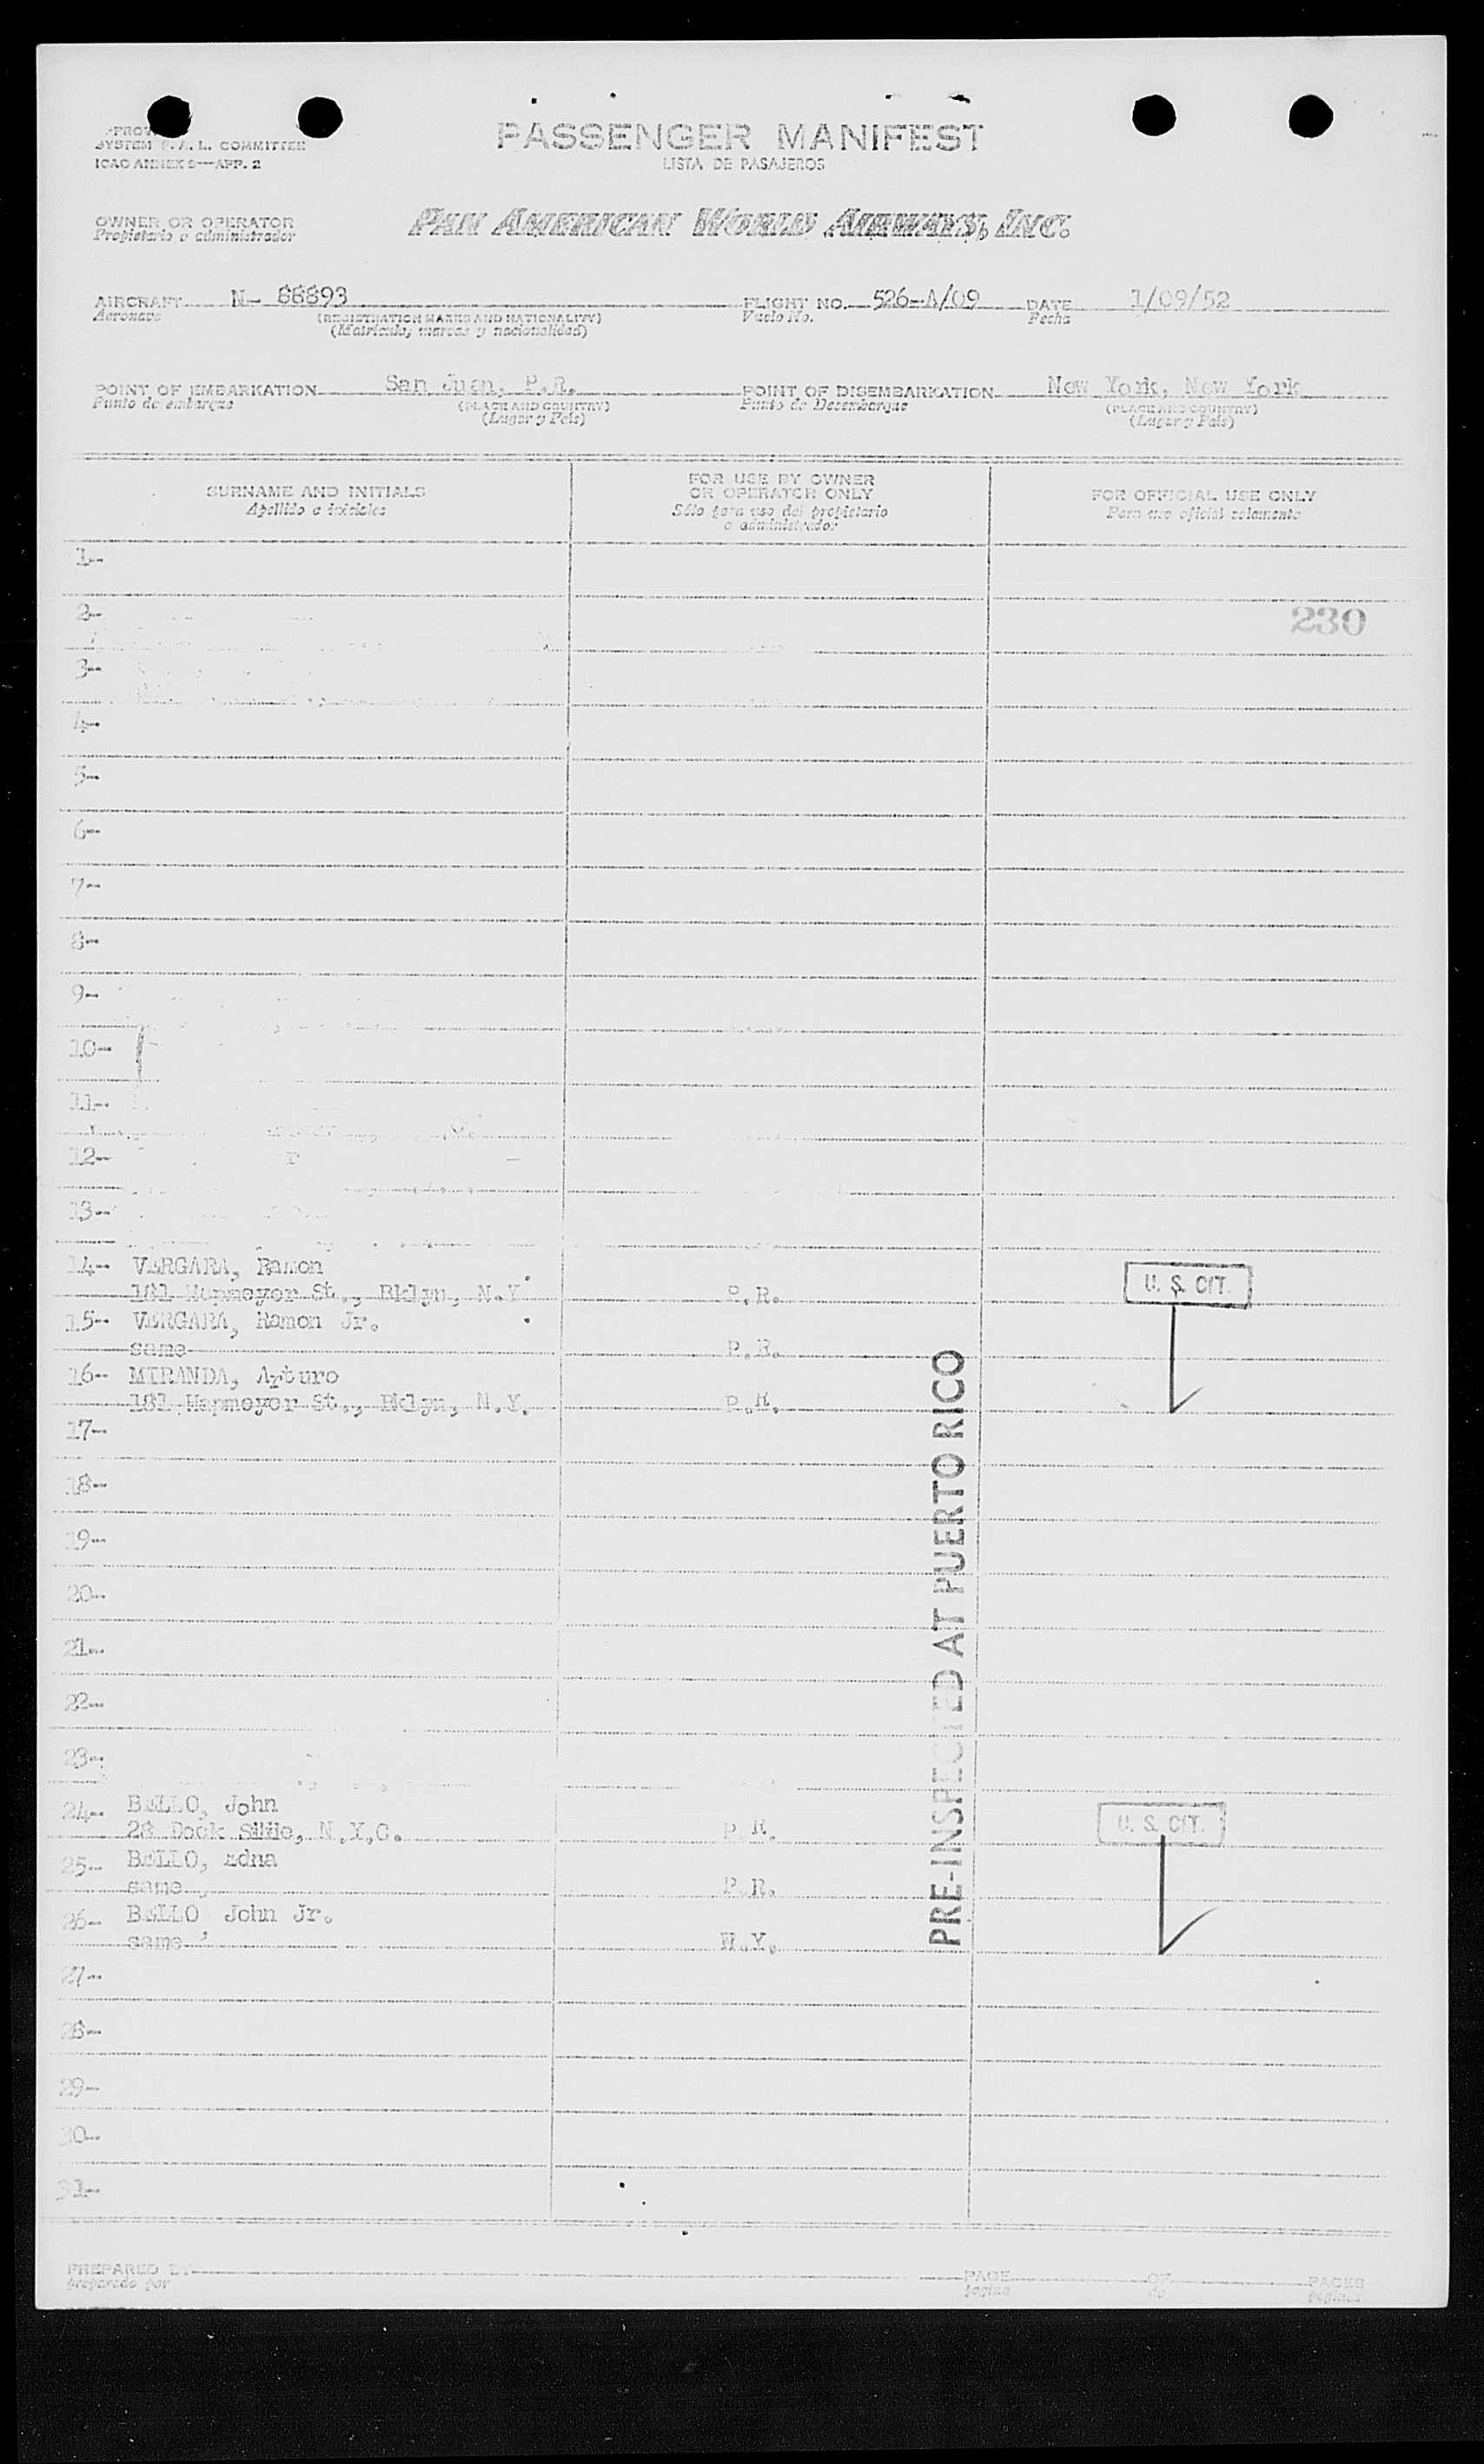 SYSTEM F.A.L. COMMITTEE
ICAO ANNEX 9—APP. 2
PASSENGER MANIFEST
LISTA DE PASAJEROS
OWNER OR OPERATOR
Propietario o administrador
PAN AMERICAN WORLD AIRWAYS, INC.
AIRCRAFT N- 88893 FLIGHT NO. 526-A/09 DATE 1/09/52
Aeronave (REGISTRATION MARKS AND NATIONALITY) Vuelo No. Fecha
(Matricula, marcas y nacionalidad)
POINT OF EMBARKATION San Juan, P.R. POINT OF DISEMBARKATION New York, New York
Punto de embarque (PLACE AND COUNTRY) Punto de Desembarque (PLACE AND COUNTRY)
(Lugar y Pais) (Lugar y Pais)
SURNAME AND INITIALS
Apellido e iniciales
FOR USE BY OWNER
OR OPERATOR ONLY
Sólo para uso del propietario
o administrador
FOR OFFICIAL USE ONLY
Para uso oficial solamente
1--
2--
230
3--
4--
5--
6--
7--
8--
9--
10--
11--
12--
13--
14-- VERGARA, Ramon
181 St., Bklyn, N.Y. P.R.
U. S. CIT.
15-- VERGARA, Ramon Jr.
same P.R.
16-- MIRANDA, Arturo
181 St., Bklyn, N.Y. P.R.
17--
18--
19--
20--
21--
22--
23--
PRE-INSPECTED AT PUERTO RICO
24-- BELLO, John
28 Dock N.Y.C. P.R.
U. S. CIT.
25-- BELLO, Edna
same P.R.
26-- BELLO, John Jr.
same N.Y.
27--
28--
29--
30--
31--
PREPARED BY PAGE OF PAGES
preparado por pagina de paginas